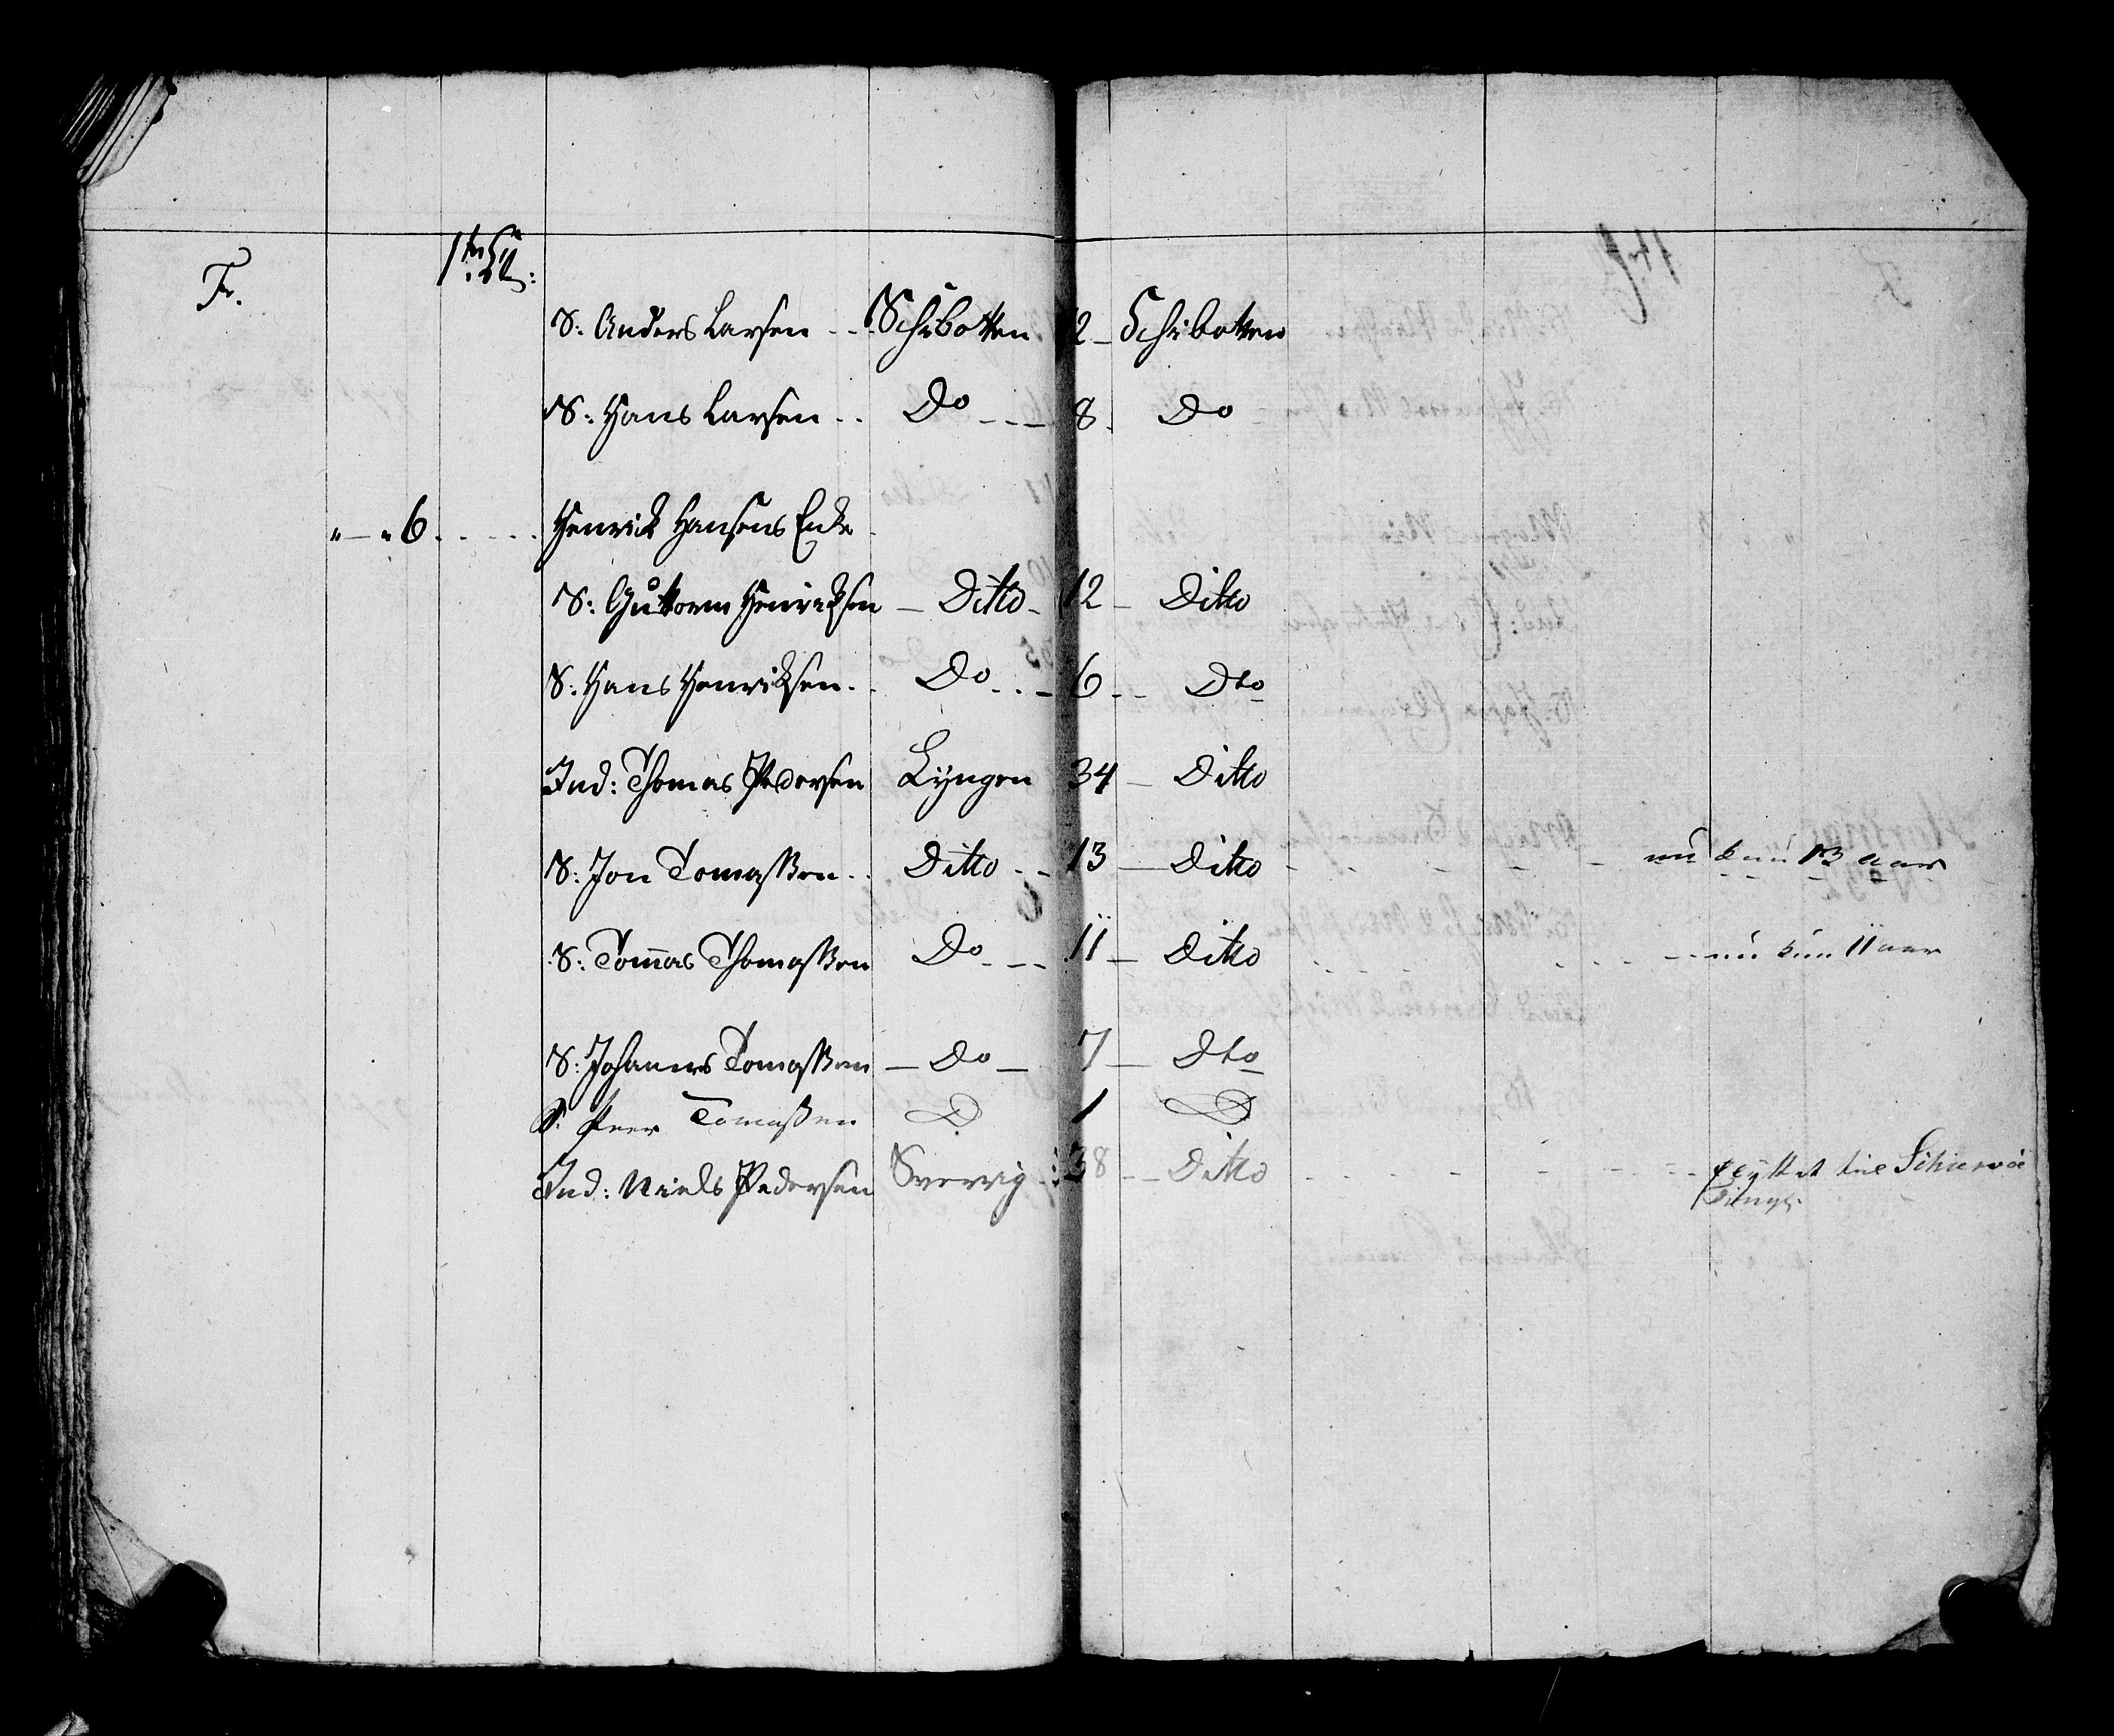 F.
S: Anders Larsen - - Schibotten 2 - Schibotten
S: Hans Larsen - - Do - - - 8. Do
" - " 6 - - - - - Henrick Hansens Enke
S: Guttorm Henricksen - Ditto - 12 - Ditto
S: Hans Henriksen - - Do - - - 6 - - Dto
Ind: Thomas Pedersen Lyngen 34 - Ditto
S: Jon Tomassen - - Ditto - - 13 - Ditto - - - - - nu kun 13 aar
S: Tom̄as Thomassen Do - - - 11 - Ditto - - - - - nu kun 11 aar
S: Johanes Tomassen - Do - 7 - Dto
S: Peer Tomassen D 1 D
Ind: Niels Pedersen Sverrig 38 - - Ditto - - - - - flyttet til Schiervöe
Tingl.